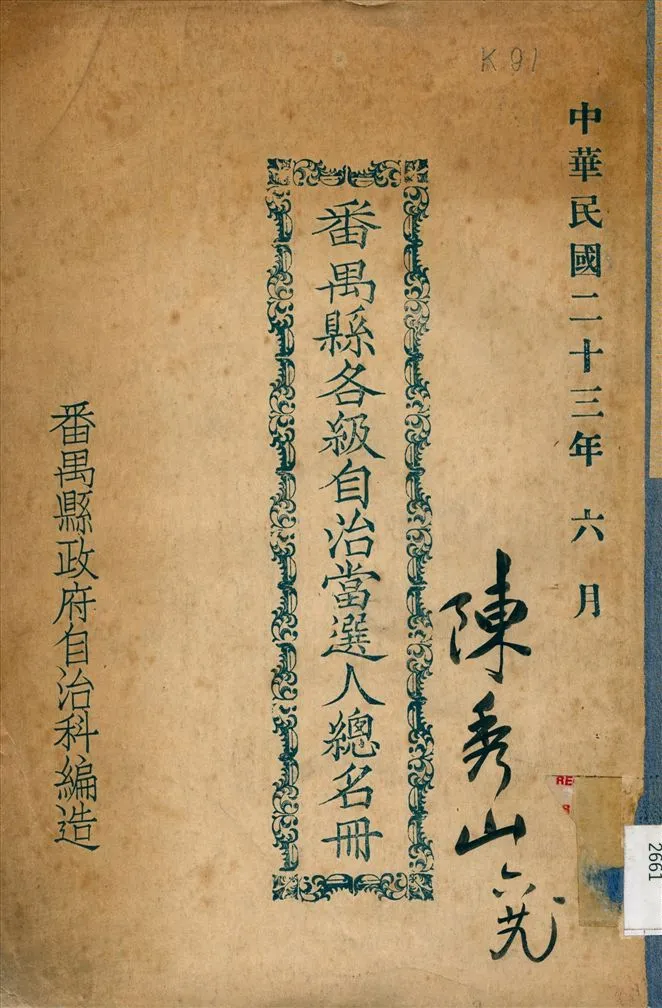 K 91
中華民國二十三年 六月
番禺縣各級自治當選人總名冊
陳秀山
番禺縣政府自治科編造
RE
2661